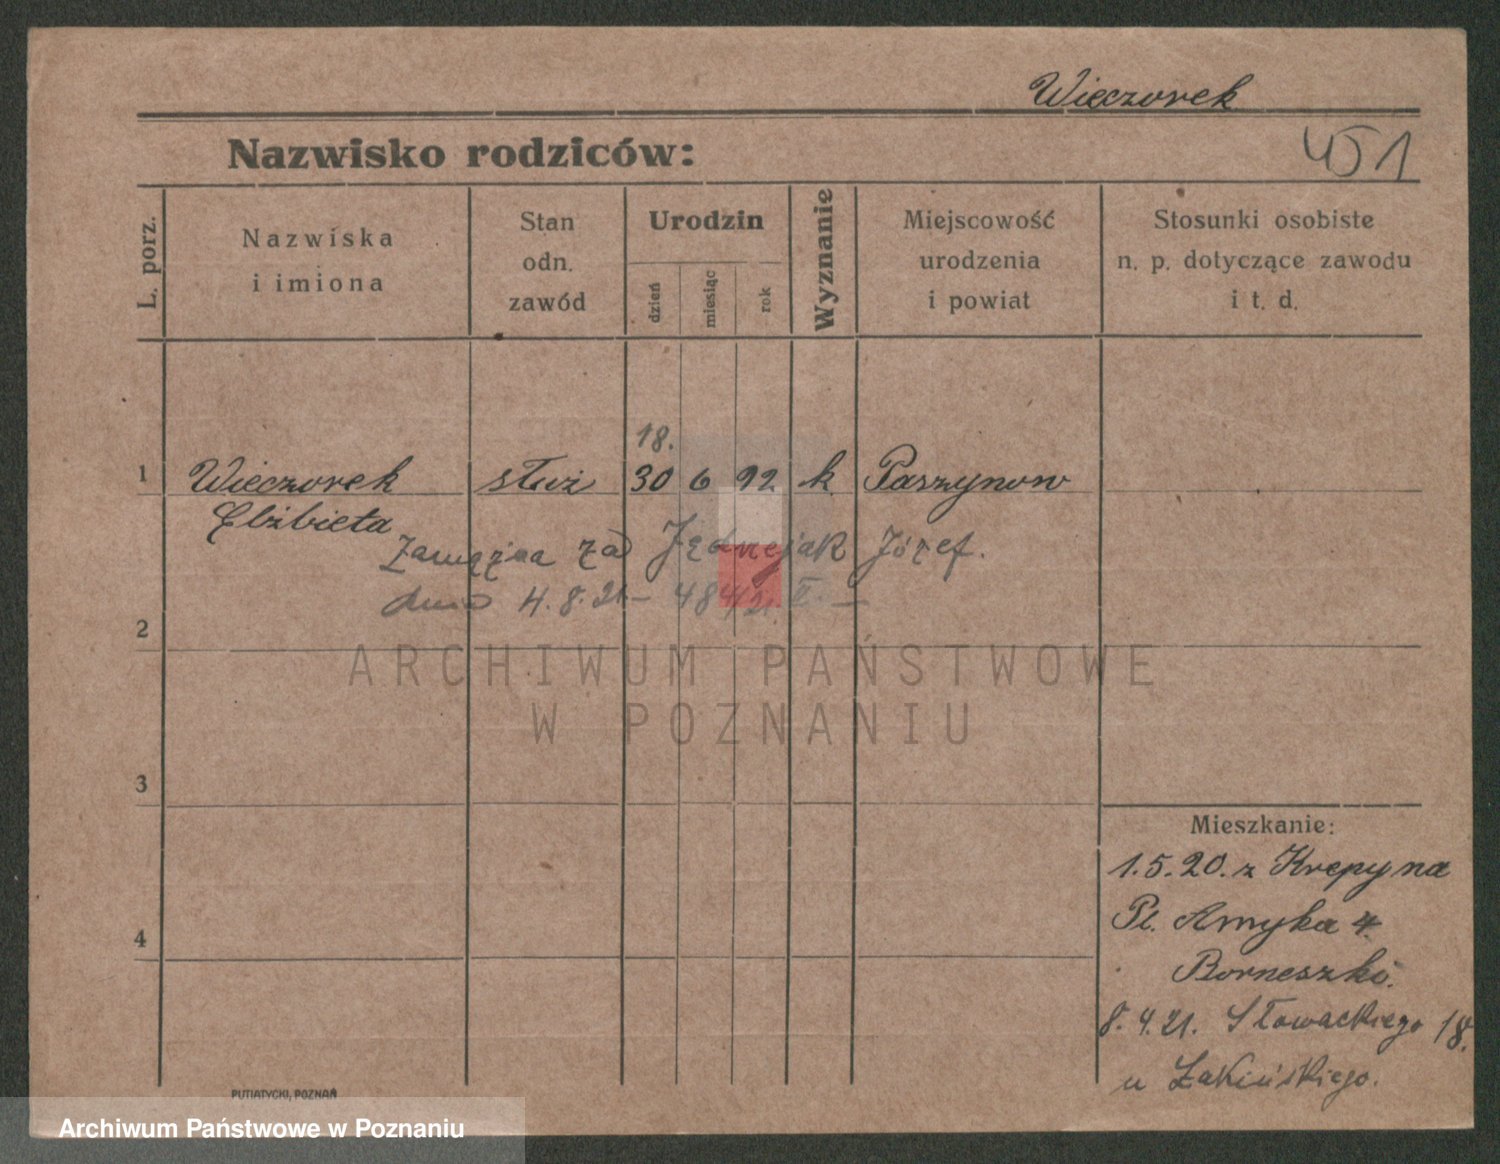 Wieczorek
Nazwisko rodziców:
451
L. porz.
Nazwiska
i imiona
Stan
odn.
zawód
Urodzin
dzień
miesiąc
rok
Wyznanie
Miejscowość
urodzenia
i powiat
Stosunki osobiste
n. p. dotyczące zawodu
i t. d.
18.
1 Wieczorek służ 30 6 92 k Paszynow
Elżbieta
Zamężna za Jędrzejak Józef.
dnia 4.8.21 – 484/21
2
ARCHIWUM PAŃSTWOWE
W POZNANIU
3
Mieszkanie:
1.5.20. z Krepy na
4
Pl. Asnyka 4.
8.4.21. Słowackiego 18.
u
PUTIATYCKI, POZNAŃ
Archiwum Państwowe w Poznaniu